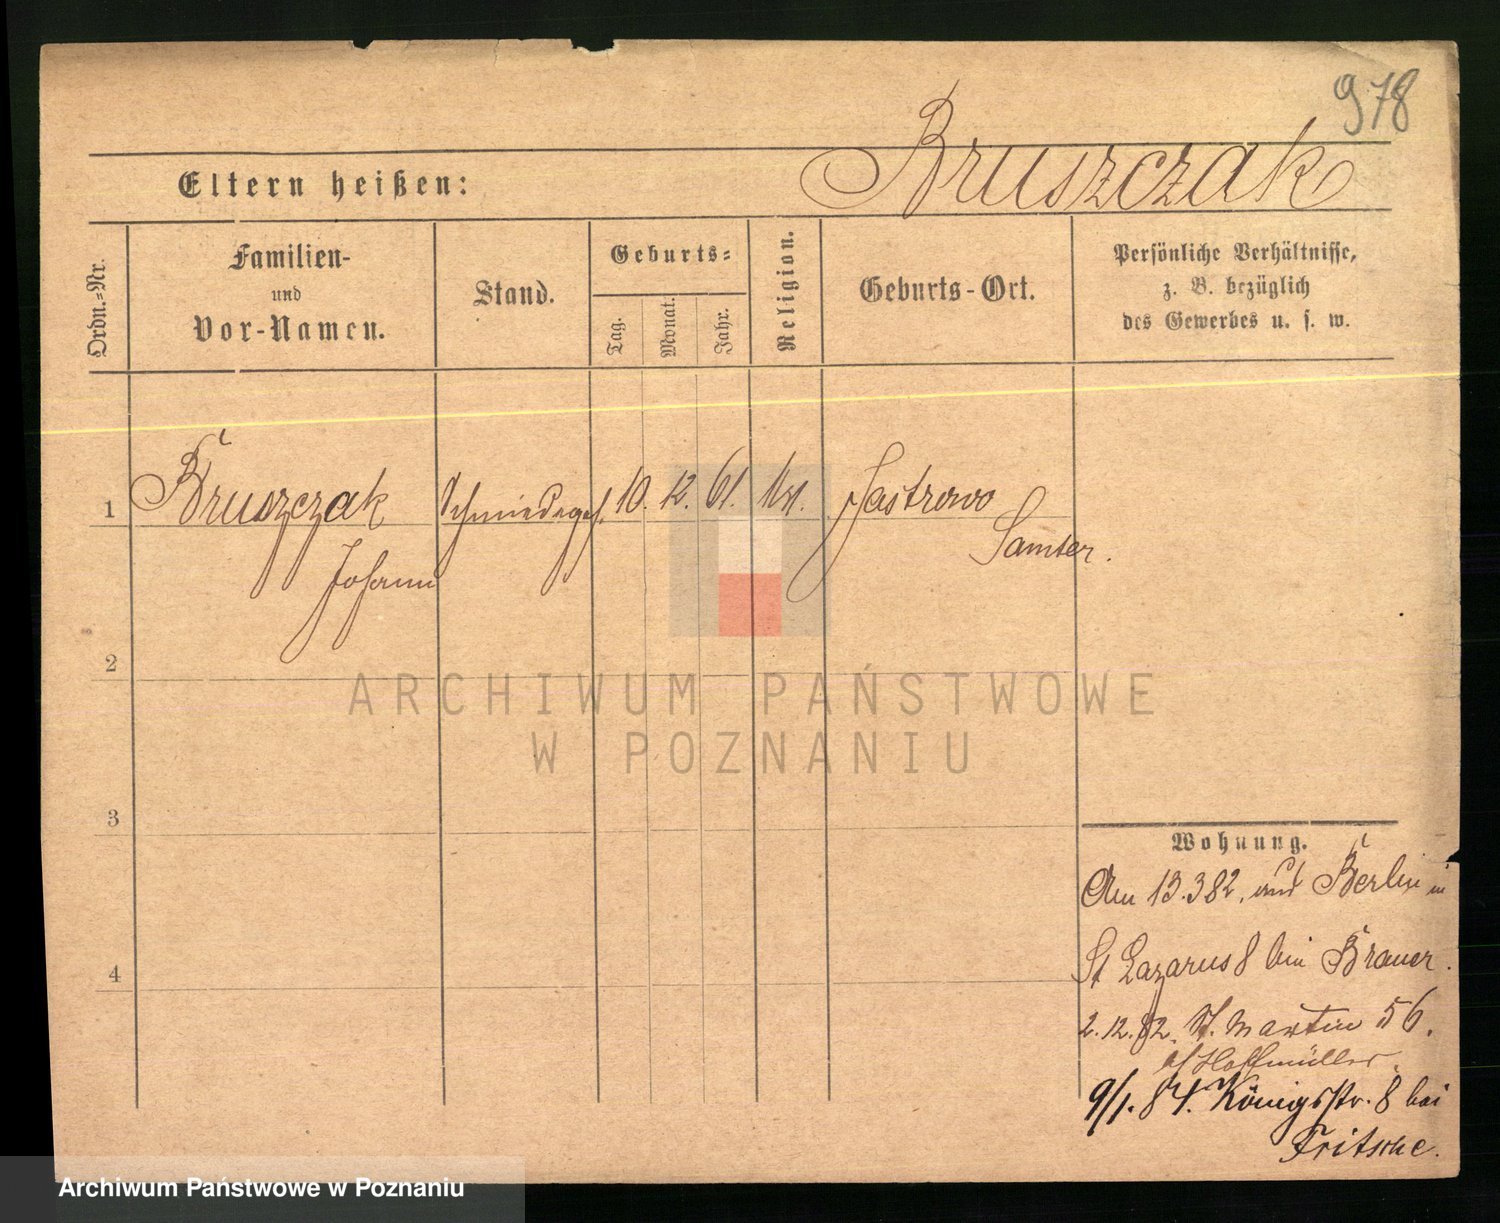 978
Bruszczak
Eltern heißen:
Ordn.=Nr.
Familien-
und
Vor-Namen.
Stand.
Geburts=
Tag.
Monat.
Jahr.
Religion.
Geburts-Ort.
Persönliche Verhältnisse,
z. B. bezüglich
des Gewerbes u. s. w.
1 Bruszczak Schmiedeges. 10. 12. 61. Jastrowo
Johann Samter.
2
3
4
ARCHIWUM PAŃSTWOWE
W POZNANIU
Wohnung.
Am 13.3 82, aus Berlin in
St Lazarus 8 bei Brauer.
2.12.82. St. Martin 56.
b/ Hoffmüller.
9/1. 84. Königsstr. 8 bei
Fritsche.
Archiwum Państwowe w Poznaniu